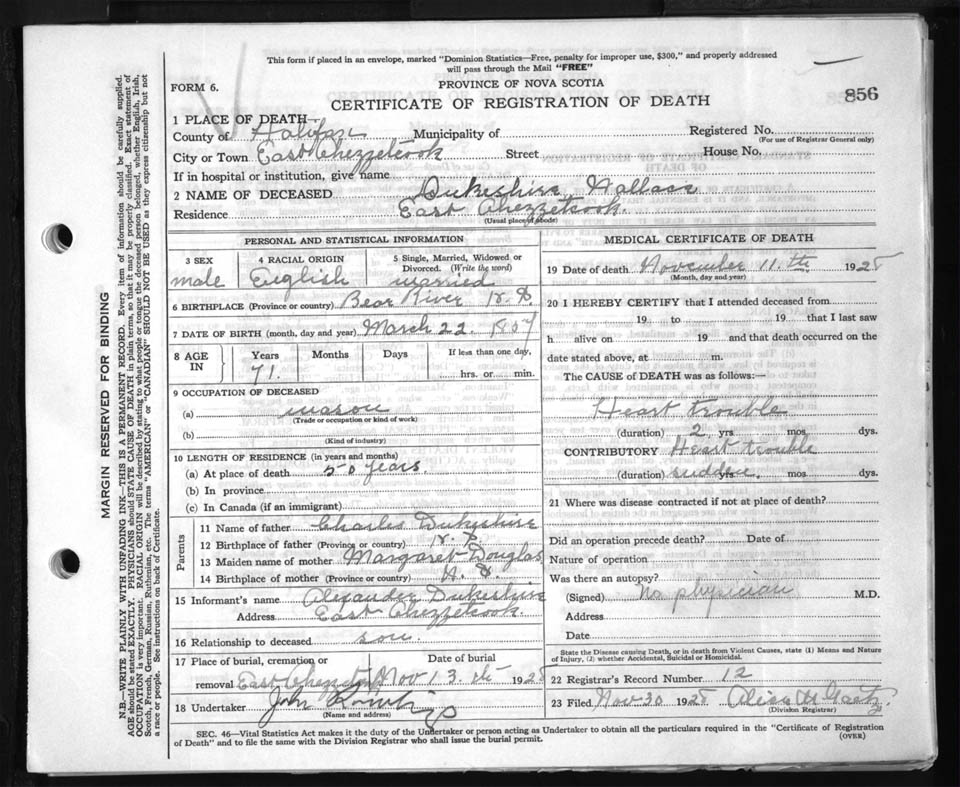 This form if placed in an envelope, marked "Dominion Statistics—Free, penalty for improper use, $300," and properly addressed
will pass through the Mail "FREE"
FORM 6.
PROVINCE OF NOVA SCOTIA
CERTIFICATE OF REGISTRATION OF DEATH
856
1 PLACE OF DEATH—
County of Halifax Municipality of Registered No.
(For use of Registrar General only)
City or Town East Chezzetcook Street House No.
If in hospital or institution, give name
2 NAME OF DECEASED Dukeshire Wallace
Residence East Chezzetcook.
(Usual place of abode)
PERSONAL AND STATISTICAL INFORMATION
3 SEX 4 RACIAL ORIGIN 5 Single, Married, Widowed or
Divorced. (Write the word)
male English married
6 BIRTHPLACE (Province or country) Bear River N.S.
7 DATE OF BIRTH (month, day and year) March 22. 1857
8 AGE IN Years Months Days If less than one day,
71. hrs. or min.
9 OCCUPATION OF DECEASED
(a) mason
(Trade or occupation or kind of work)
(b)
(Kind of industry)
10 LENGTH OF RESIDENCE (in years and months)
(a) At place of death 50 years.
(b) In province
(c) In Canada (if an immigrant)
Parents
11 Name of father Charles Dukeshire
12 Birthplace of father (Province or country) N.S.
13 Maiden name of mother Margaret Douglas
14 Birthplace of mother (Province or country) N.S.
15 Informant's name Alexander Dukeshire
Address East Chezzetcook.
16 Relationship to deceased son.
17 Place of burial, cremation or Date of burial
removal East Chezzetcook Nov 13th 1928
18 Undertaker John
(Name and address)
MEDICAL CERTIFICATE OF DEATH
19 Date of death November 11.th 1928
(Month, day and year)
20 I HEREBY CERTIFY that I attended deceased from
19 to 19 that I last saw
h alive on 19 and that death occurred on the
date stated above, at m.
The CAUSE of DEATH was as follows:—
Heart trouble
(duration) 2 yrs. mos. dys.
CONTRIBUTORY Heart trouble
(duration) sudden yrs. mos. dys.
21 Where was disease contracted if not at place of death?
Did an operation precede death? Date of
Nature of operation
Was there an autopsy?
(Signed) No physician M.D.
Address
Date
State the Disease causing Death, or in death from Violent Causes, state (1) Means and Nature
of Injury, (2) whether Accidental, Suicidal or Homicidal.
22 Registrar's Record Number 12
23 Filed Nov 30 1928 Alice M
(Division Registrar)
SEC. 46—Vital Statistics Act makes it the duty of the Undertaker or person acting as Undertaker to obtain all the particulars required in the "Certificate of Registration
of Death" and to file the same with the Division Registrar who shall issue the burial permit.
(OVER)
MARGIN RESERVED FOR BINDING
N.B.—WRITE PLAINLY WITH UNFADING INK—THIS IS A PERMANENT RECORD. Every item of information should be carefully supplied.
AGE should be stated EXACTLY. PHYSICIANS should STATE CAUSE OF DEATH in plain terms, so that it may be properly classified. Exact statement of
OCCUPATION is very important. RACIAL ORIGIN will be described by stating to what people or tongue the deceased person belonged, whether English, Irish,
Scotch, French, German, Russian, Ruthenian, etc. The terms "AMERICAN" or "CANADIAN" SHOULD NOT BE USED as they express citizenship but not
a race or people. See instructions on back of Certificate.